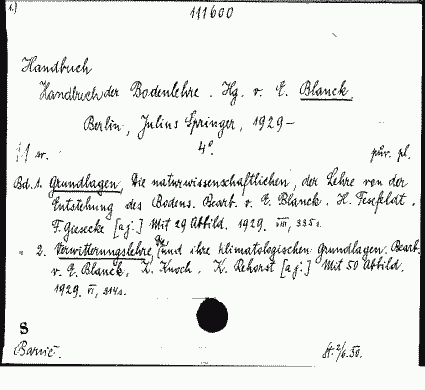 1.)
111600
Handbuch
Handbuch der Bodenlehre. Hg. v. E. Blanck.
Berlin, Julius Springer, 1929 –
4°.
11 sv. pův. pl.
Bd. 1. Grundlagen, Die naturwissenschaftlichen, der Lehre von der
Entstehung des Bodens. Bearb. v. E. Blanck. H. Fesefeldt.
F. Giesecke [a j.] Mit 29 Abbild. 1929. VIII, 335 s.
" 2. Verwitterungslehre, Die und ihre klimatologischen Grundlagen. Bearb.
v. E. Blanck, K. Knoch. K. Rehorst [a j.] Mit 50 Abbild.
1929. VI, 314 s.
S
Barvíč. St. 2/6.50.